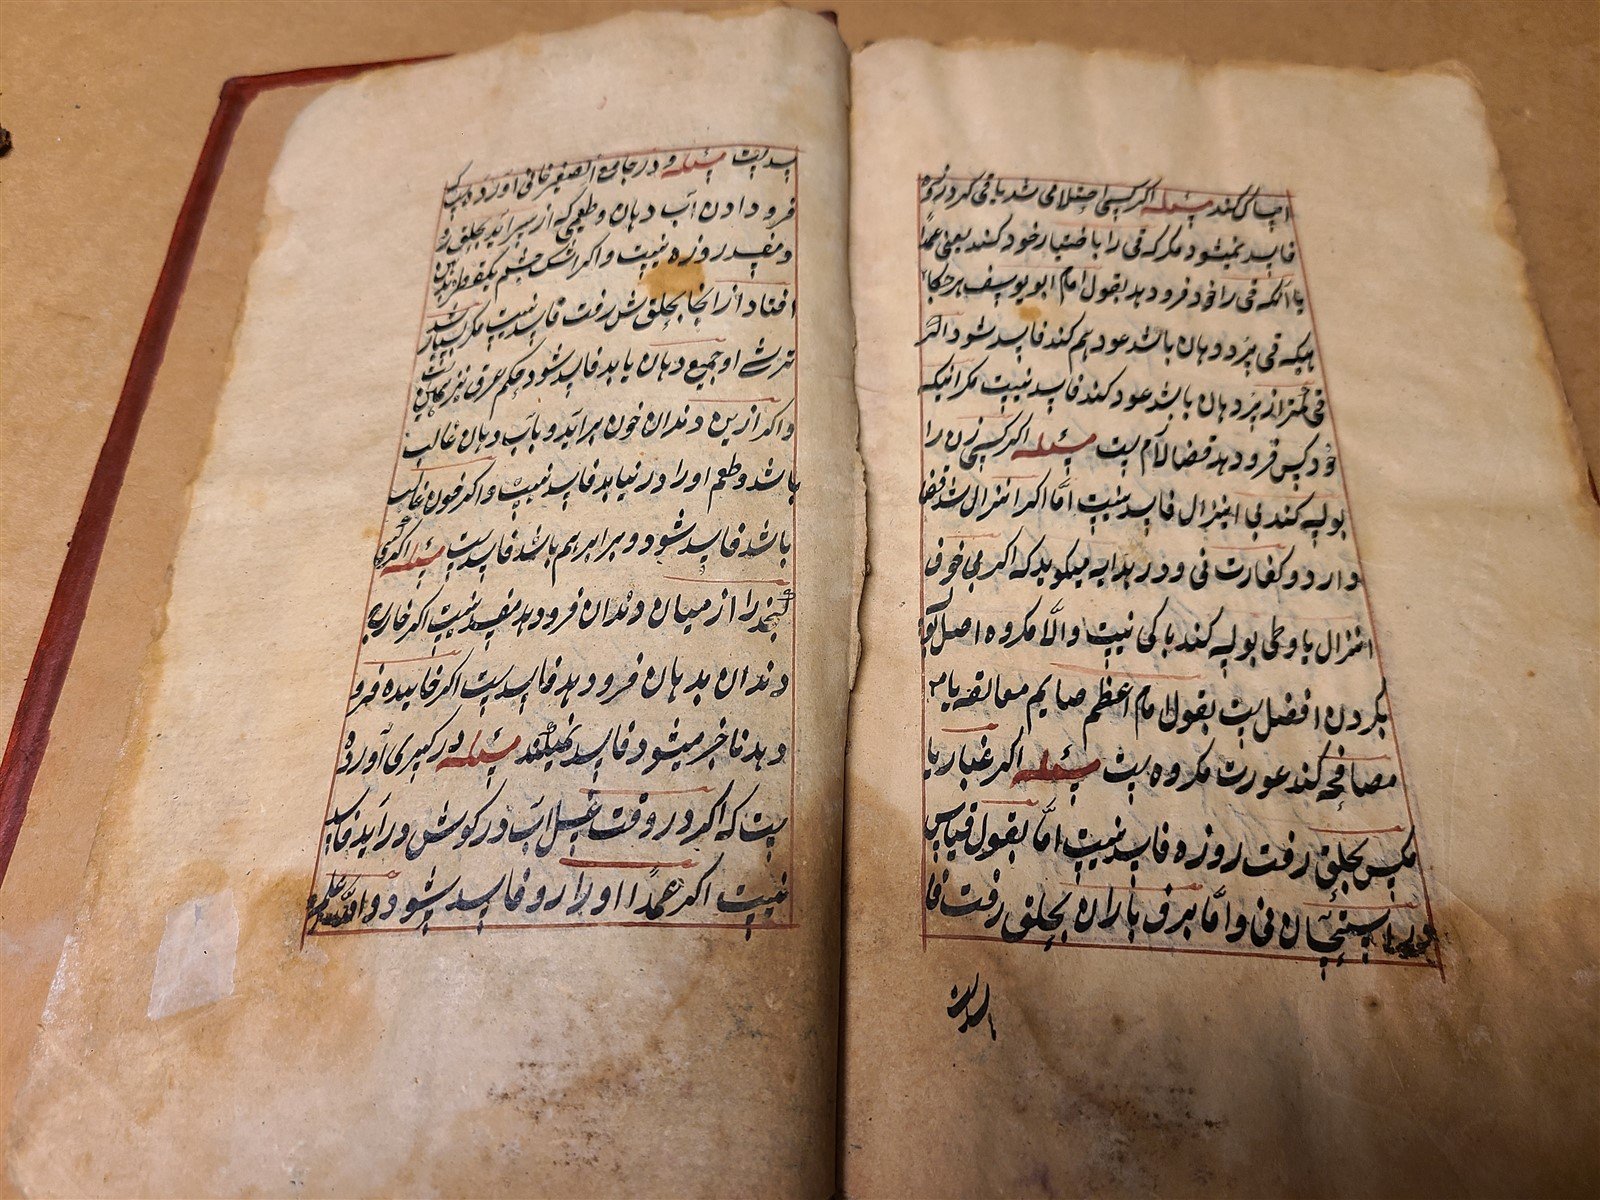 کند مسئله اکر کسی را احتلامی شد یا قی کرد روزه
فاسد نمیشود مکر که قی را باختیار خود کند یعنی عمداً
یا آنکه قی را فرو دهد بقول امام ابو یوسف هر
قی پر دهان باشد عود هم کند فاسد شود اکر
قی کمتر از پر دهان باشد عود کند فاسد نیست مکر آنکه
فرو دهد قضا لازم ست مسئله اکر کسی زن را
بوسه کند بی انزال فاسد نیست امّا اکر انزال شد قضا
دارد و کفارت نی و در هدایه میکوید که اکر بی خوفی
انزال یا وطی بوسه کند باکی نیست والّا مکروه اصل
کردن افضل ست بقول امام اعظم صایم معانقه یا
مصافحه کند عورت مکروه ست مسئله اکر غبار یا
مکس بحلق رفت روزه فاسد نیست امّا بقول قیاس
استحسان نی و امّا برف باران بحلق رفت
است
ست مسئله و در جامع الصغیر خانی آورده
فرو دادن آب دهان و طعمی که از سر آید بحلق
و مفسد روزه نیست و اکر اشک چشم یک قطره
افتاد از انجا بحلقش رفت فاسد نیست مکر بسیار باشد
ترشی او جمیع دهان یابد فاسد شود حکم عرق نیز
و اکر از بن دندان خون برآید و بآب دهان غالب
باشد و طعم او را در نیابد فاسد نیست و اکر خون غالب
باشد فاسد شود و برابر هم باشد فاسد ست مسئله اکر کسی
کنجد را از میان دندان فرو دهد مفسد نیست اکر خارج
دندان بدهان فرو دهد فاسد ست اکر خاییده فرو
دهد ناچیز میشود فاسد نمیکند مسئله در کبیری آورده
ست که اکر در وقت غسل آب در کوش درآید فاسد
نیست اکر عمداً او را رو فاسد شود و الله اعلم